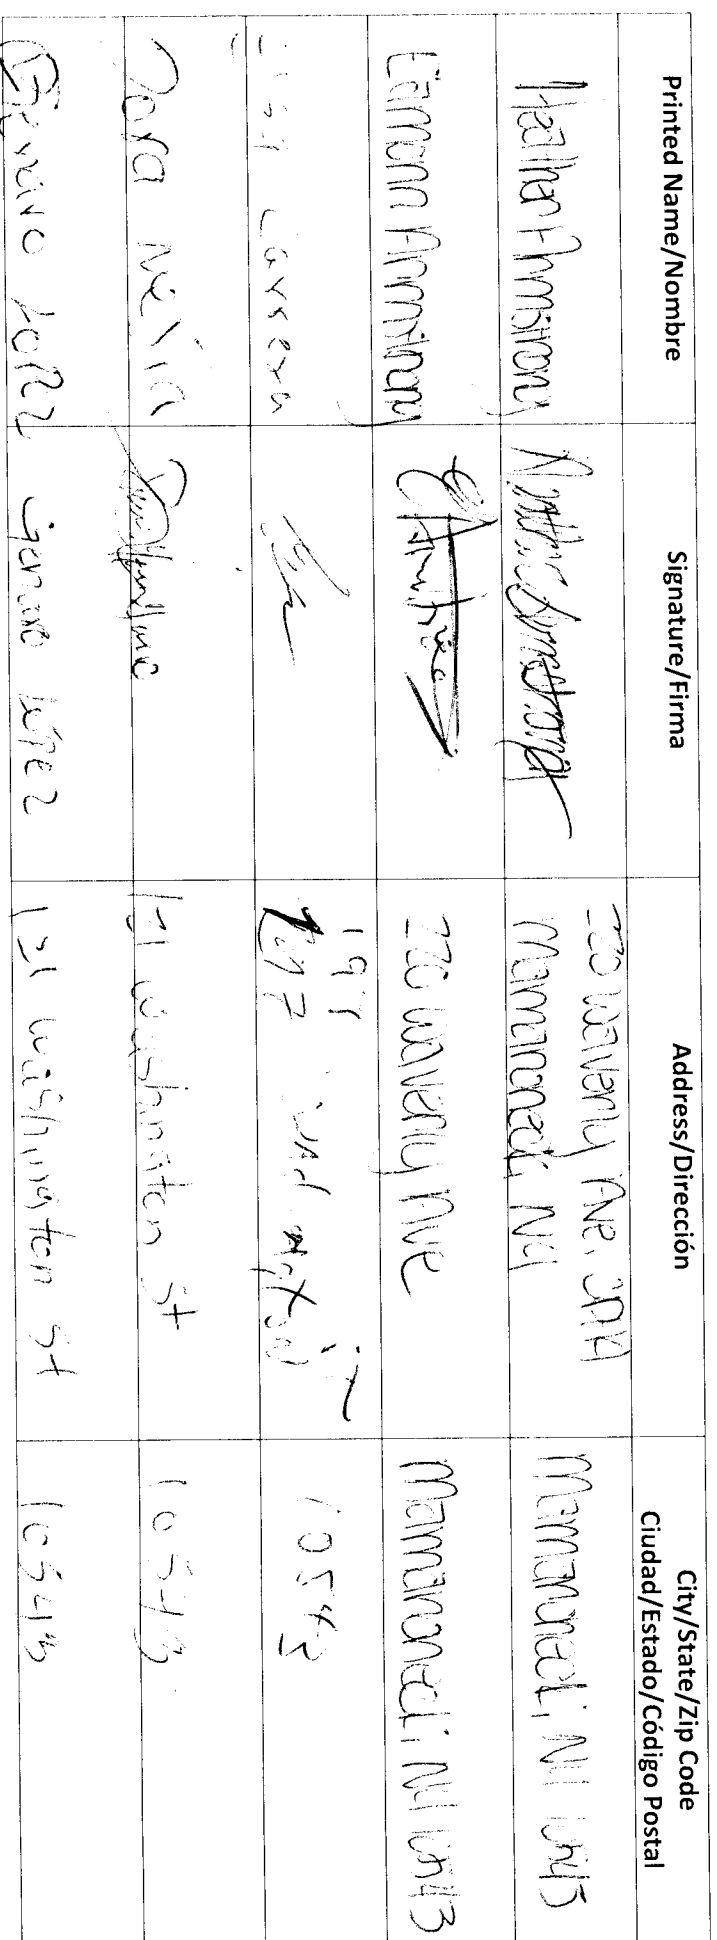 Printed Name/Nombre
Signature/Firma
Address/Dirección
City/State/Zip Code
Ciudad/Estado/Código Postal
Heather Armstrong
Heather Armstrong
Waverly Ave,
Mamaroneck, NY
Mamaroneck, NY 10543
Eamonn Armstrong
Waverly Ave
Mamaroneck, NY 10543
Carrera
10543
Mejia
Washington St
10543
Genaro Lopez
Genaro López
Washington St
10543